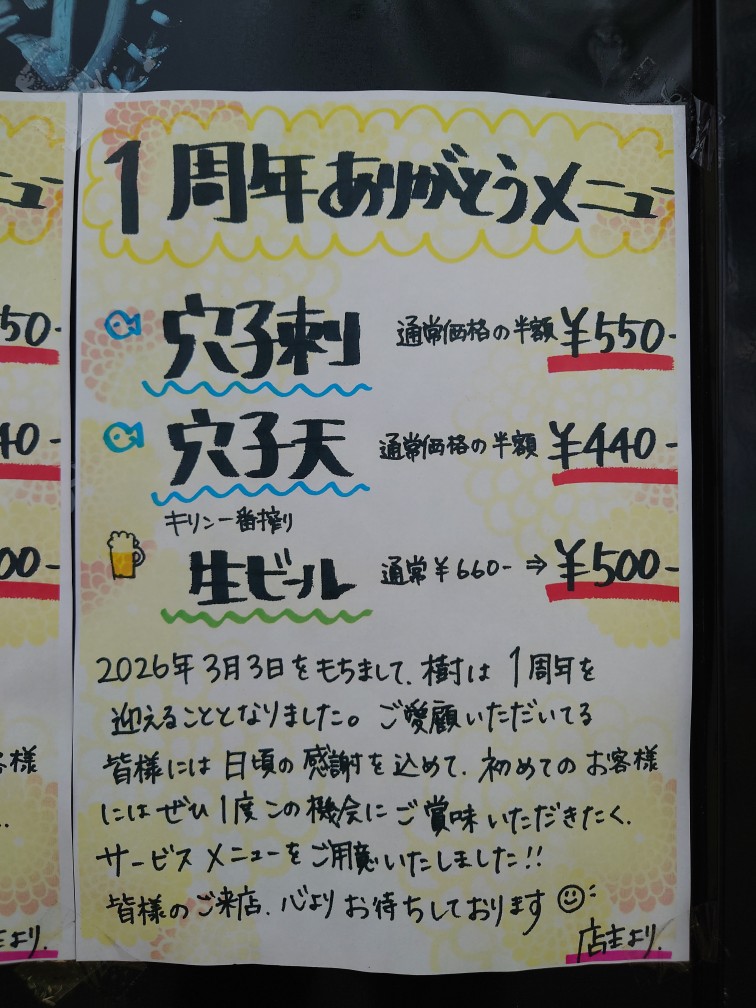 1周年ありがとうメニュー
穴子刺 通常価格の半額 ¥550-
穴子天 通常価格の半額 ¥440-
キリン一番搾り
生ビール 通常¥660- ⇒ ¥500-
2026年3月3日をもちまして、樹は1周年を
迎えることとなりました。ご愛顧いただいてる
皆様には日頃の感謝を込めて、初めてのお客様
にはぜひ1度この機会にご賞味いただきたく、
サービスメニューをご用意いたしました!!
皆様のご来店、心よりお待ちしております
店主より、
ニュー
50-
40-
00-
様
主より、